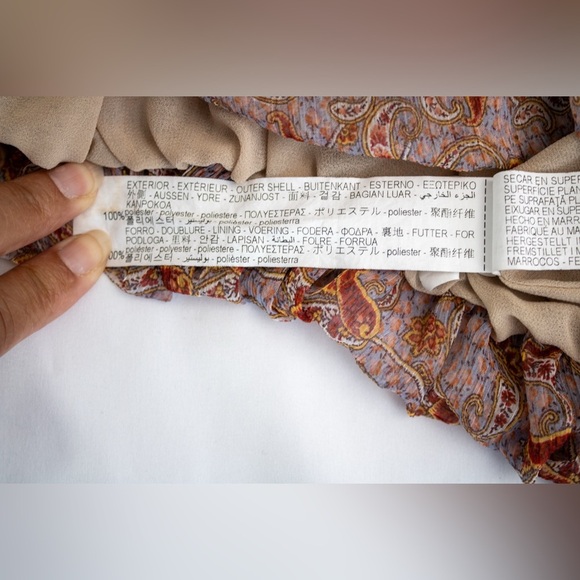 EXTERIOR - EXTÉRIEUR - OUTER SHELL - BUITENKANT - ESTERNO - ΕΞΩΤΕΡΙΚΟ
外衆 - AUSSEN - YDRE - ZUNANJOST - 面料 - 겉감 - BAGIAN LUAR - الجزء الخارجي
KANPOKOA
100% poliéster - polyester - polyestere - poliestere - ΠΟΛΥΕΣΤΕΡΑΣ - ポリエステル - poliester - 聚酯纤维
폴리에스터 - بوليستير - poliesterra
FORRO - DOUBLURE - LINING - VOERING - FODERA - ΦΟΔΡΑ - 裏地 - FUTTER - FOR
PODLOGA - 里料 - 안감 - LAPISAN - البطانة - FOLRE - FORRUA
100% poliéster - polyester - polyestere - ΠΟΛΥΕΣΤΕΡΑΣ - ポリエステル - poliester - 聚酯纤维
폴리에스터 - بوليستير - polièster - poliesterra
SECAR EN SUPER
SUPERFICIE PLAN
PE SUPRAFAȚĂ PL
EIXUGAR EN SUPER
HECHO EN MARR
FABRIQUÉ AU MA
HERGESTELLT I
FREMSTILLET I M
MARROCOS - FE